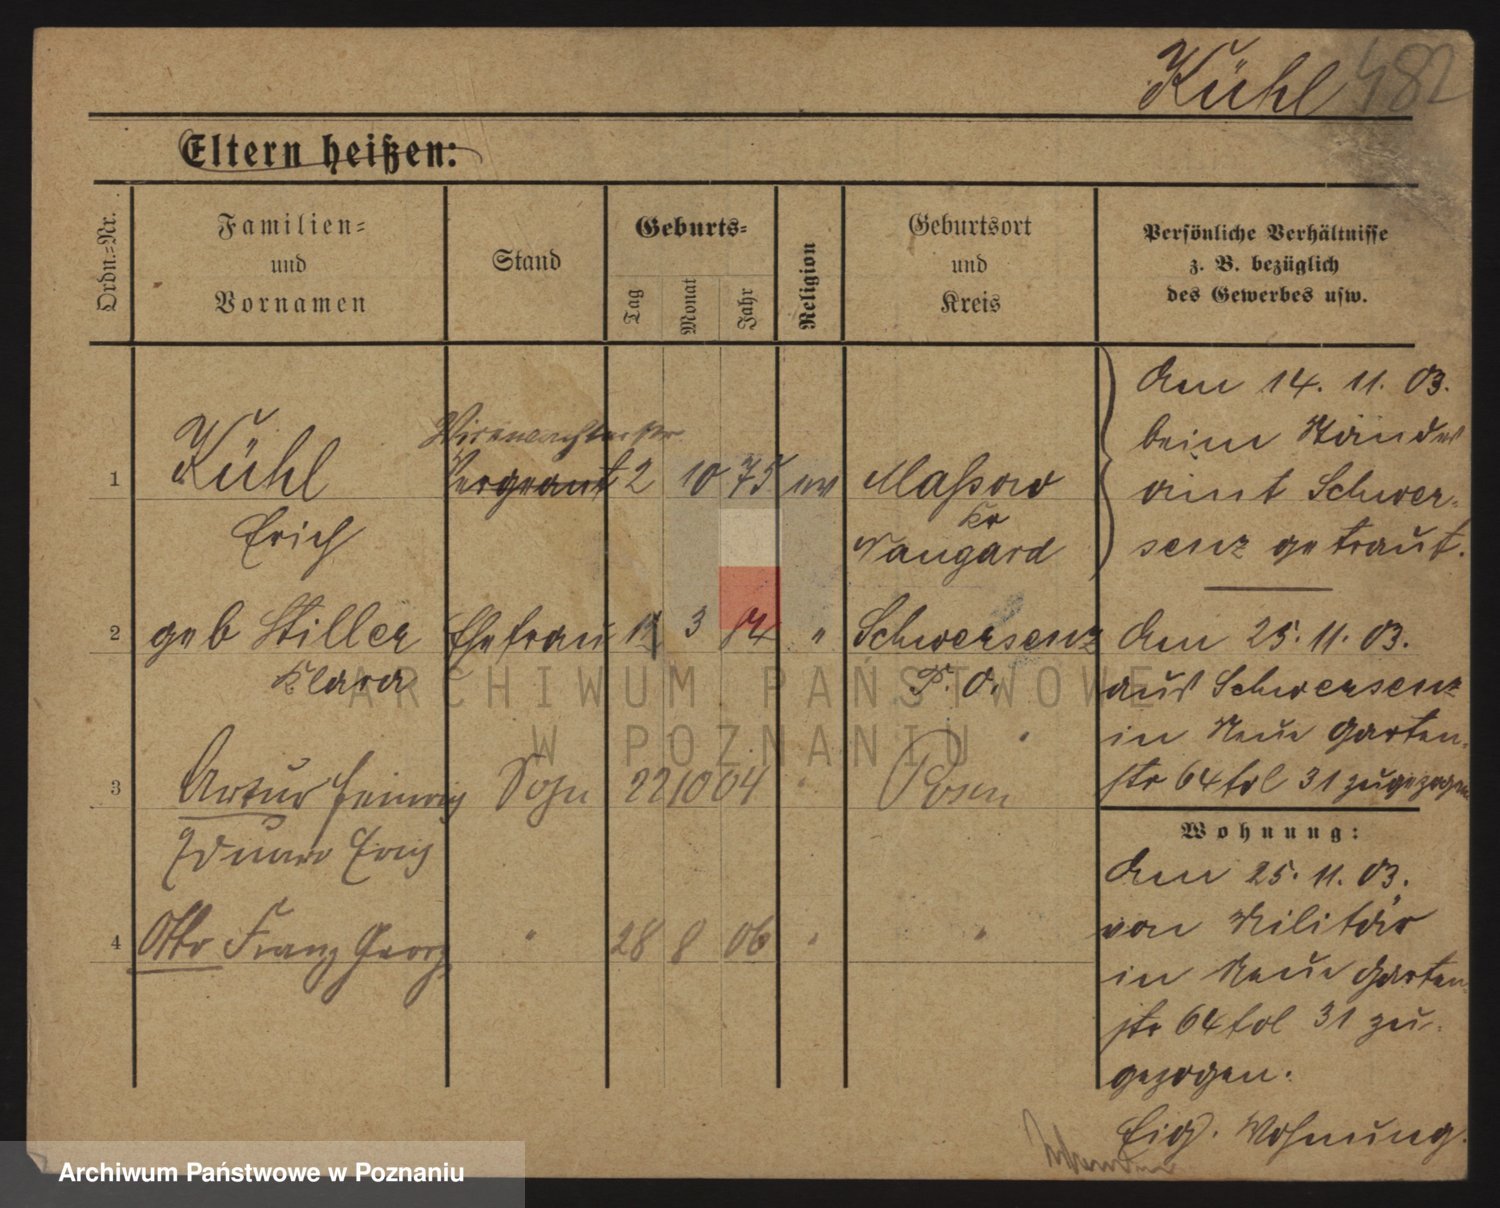 Kühl 482
Eltern heißen:
Ordn.-Nr.
Familien-
und
Vornamen
Stand
Geburts-
Tag
Monat
Jahr
Religion
Geburtsort
und
Kreis
Persönliche Verhältnisse
z. B. bezüglich
des Gewerbes usw.
1
Kühl
Erich
Sergeant
2 10 75 ev
Massow
Kr
Naugard
Am 14. 11. 03.
beim Standes
amt Schwer-
senz getraut.
2
geb Stiller
Klara
Ehefrau
3
"
Schwersenz
P. O.
Am 25. 11. 03.
aus Schwersenz
in Neue Garten-
str 64 fol 31 zugezogen
3
Artur Heinrich
Eduard Erich
Sohn
22 10 04
"
Posen
4
Otto Franz Georg
"
28 8 06
"
"
Wohnung:
Am 25. 11. 03.
von Militär
in Neue Garten-
str 64 fol 31 zu-
gezogen.
Eig. Wohnung.
ARCHIWUM PAŃSTWOWE
W POZNANIU
Archiwum Państwowe w Poznaniu